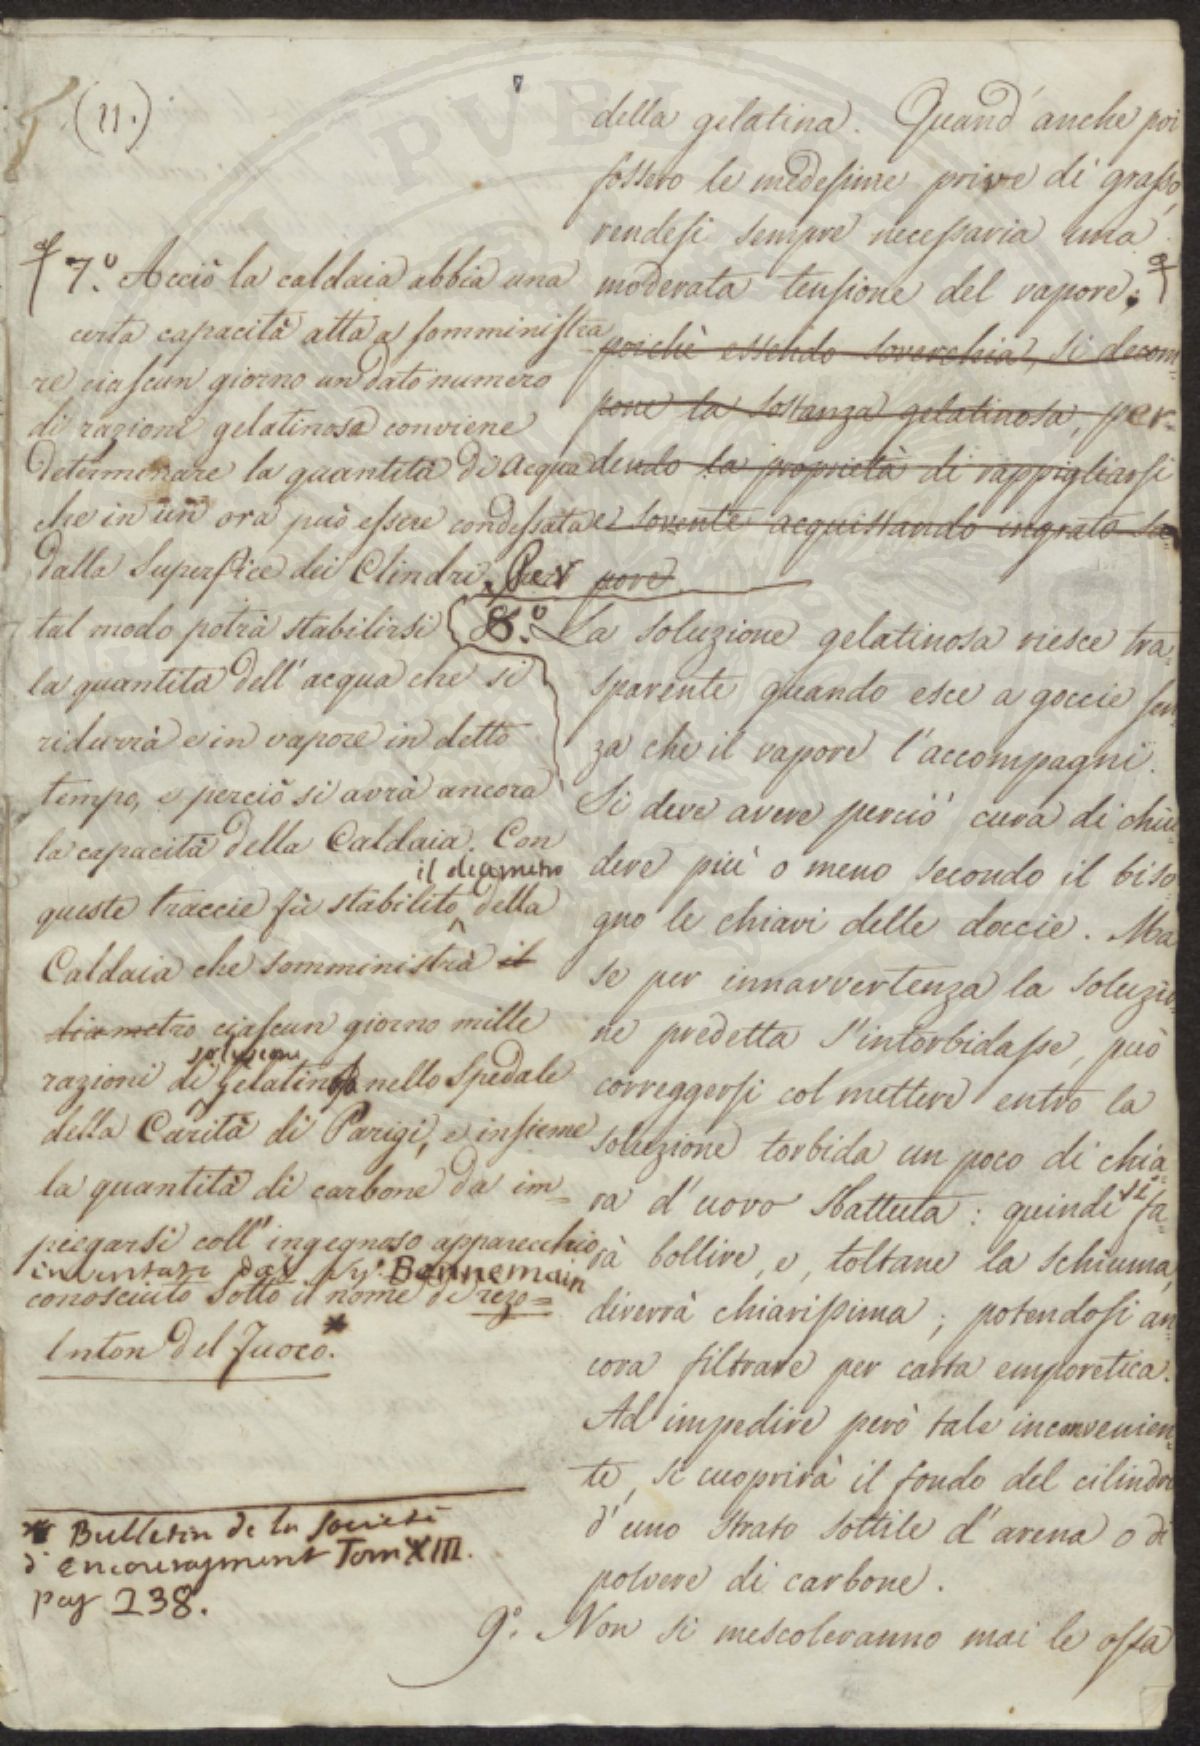 (11.)
della gelatina. Quand'anche poi
fossero le medesime prive di grasso,
rendesi sempre necessaria una
moderata tensione del vapore;
poichè essendo soverchia, si decom-
pone la sostanza gelatinosa, per-
dendo la proprietà di rappigliarsi
e sovente acquistando ingrato sa-
pore.
8.° La soluzione gelatinosa riesce tra-
sparente quando esce a goccie sen-
za che il vapore l'accompagni.
Si deve avere perciò cura di chiu-
dere più o meno secondo il biso-
gno le chiavi delle doccie. Ma
se per innavvertenza la soluzio-
ne predetta s'intorbidasse, può
correggersi col mettere entro la
soluzione torbida un poco di chia-
ra d'uovo sbattuta: quindi si fa-
rà bollire, e, toltane la schiuma,
diverrà chiarissima; potendosi an-
cora filtrare per carta emporetica.
Ad impedire però tale inconvenien-
te, si cuoprirà il fondo del cilindro
d'uno strato sottile d'arena o di
polvere di carbone.
9.° Non si mescoleranno mai le ossa
7.° Acciò la caldaia abbia una
certa capacità atta a somministra
re ciascun giorno un dato numero
di razioni gelatinosa conviene
determinare la quantità di acqua
che in un ora può essere condessata
dalla Superficie dei Clindri. Per
tal modo potrà stabilirsi
la quantità dell'acqua che si
ridurrà e in vapore in detto
tempo, e perciò si avrà ancora
la capacità della Caldaia. Con
queste traccie fù stabilito il diametro della
Caldaia che somministrà il
diametro ciascun giorno mille
razioni di soluzione gelatinosa nello Spedale
della Carità di Parigi, e insieme
la quantità di carbone da im-
piegarsi coll'ingegnoso apparecchio
inventato dal Sig. Bonnemain
conosciuto sotto il nome di rego-
lator del fuoco.*
* Bulletin de la Societé
d'encouragment Tom XIII.
pag 238.